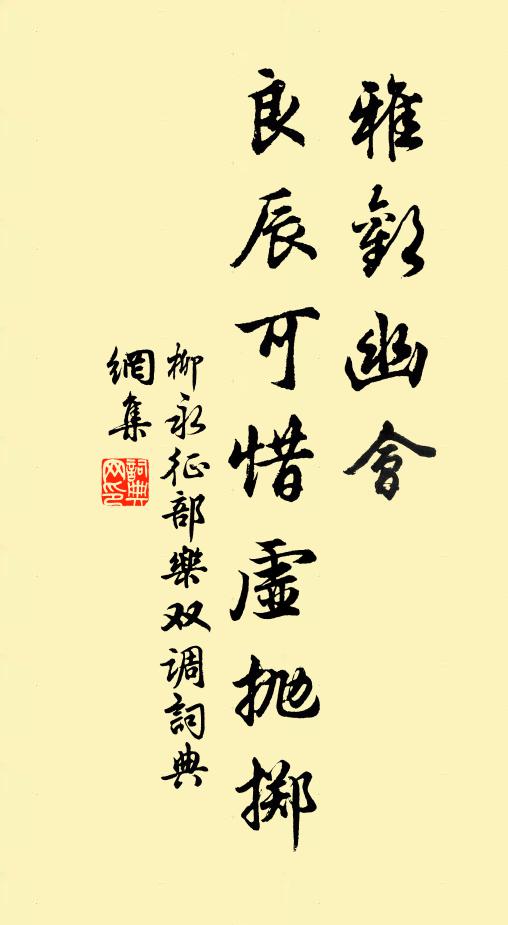 雅歡幽會
良辰可惜虛抛掷
柳永征部樂双调詞典
網集
詞典
网印